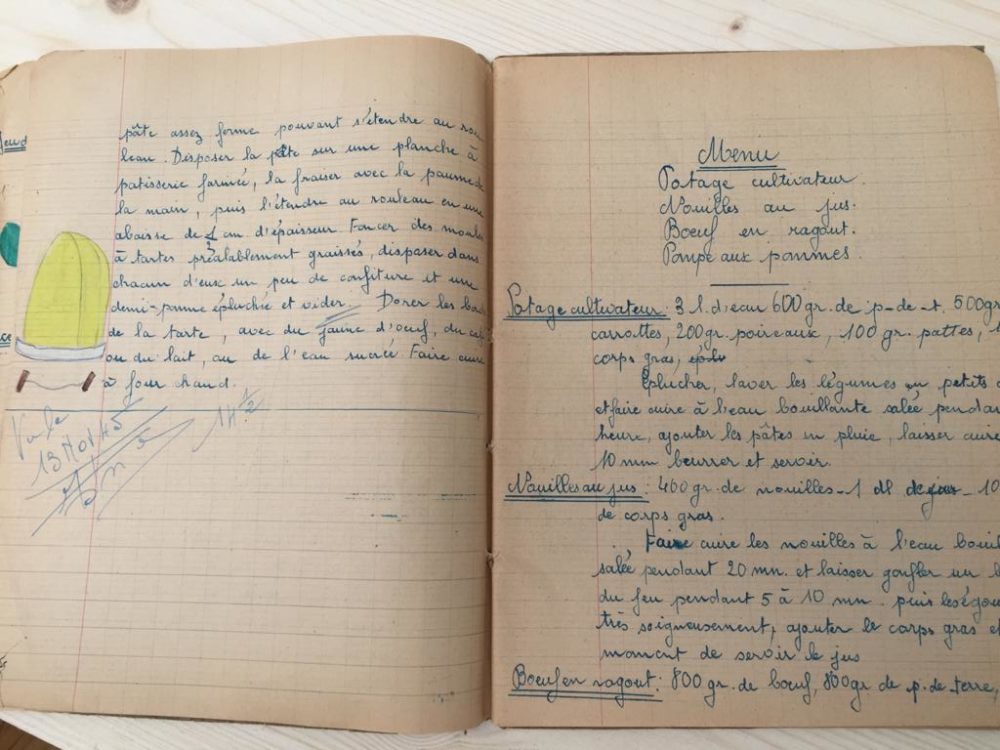 pâte assez ferme pouvant s'étendre au rou
leau. Disposer la pâte sur une planche à
patisserie farinée, la fraiser avec la paume de
la main, puis l'étendre au rouleau en une
abaisse de cm. d'épaisseur. Foncer des moules
à tartes préalablement graissés, disposer dans
chacun d'eux un peu de confiture et une
demi-pomme épluchée et vider. Dorer les bords
de la tarte, avec du jaune d'oeuf, du café
ou du lait, ou de l'eau sucrée Faire cuire
à four chaud.
Vu le
14 1/2
Menu
Potage cultivateur.
Nouilles au jus.
Boeuf en ragout.
Pompe aux pommes
Potage cultivateur. 3 l. d'eau 600 gr. de p-de-t. 500gr
carrottes, 200gr. poireaux, 100 gr. pattes, 1
corps gras,
Eplucher, laver les légumes en petits
et faire cuire à l'eau bouillante salée pendan
heure, ajouter les pâtes en pluie, laisser cuire
10 mm beurrer et servir.
Nouilles au jus: 460 gr. de nouilles - 1 dl de jus - 10
de corps gras.
Faire cuire les nouilles à l'eau boui
salée pendant 20 mn. et laisser gonfler un
du feu pendant 5 à 10 mn. puis les égou
très soigneusement, ajouter le corps gras et
moment de servir le jus
Boeuf en ragout: 800 gr. de boeuf, 800gr de p. de terre,